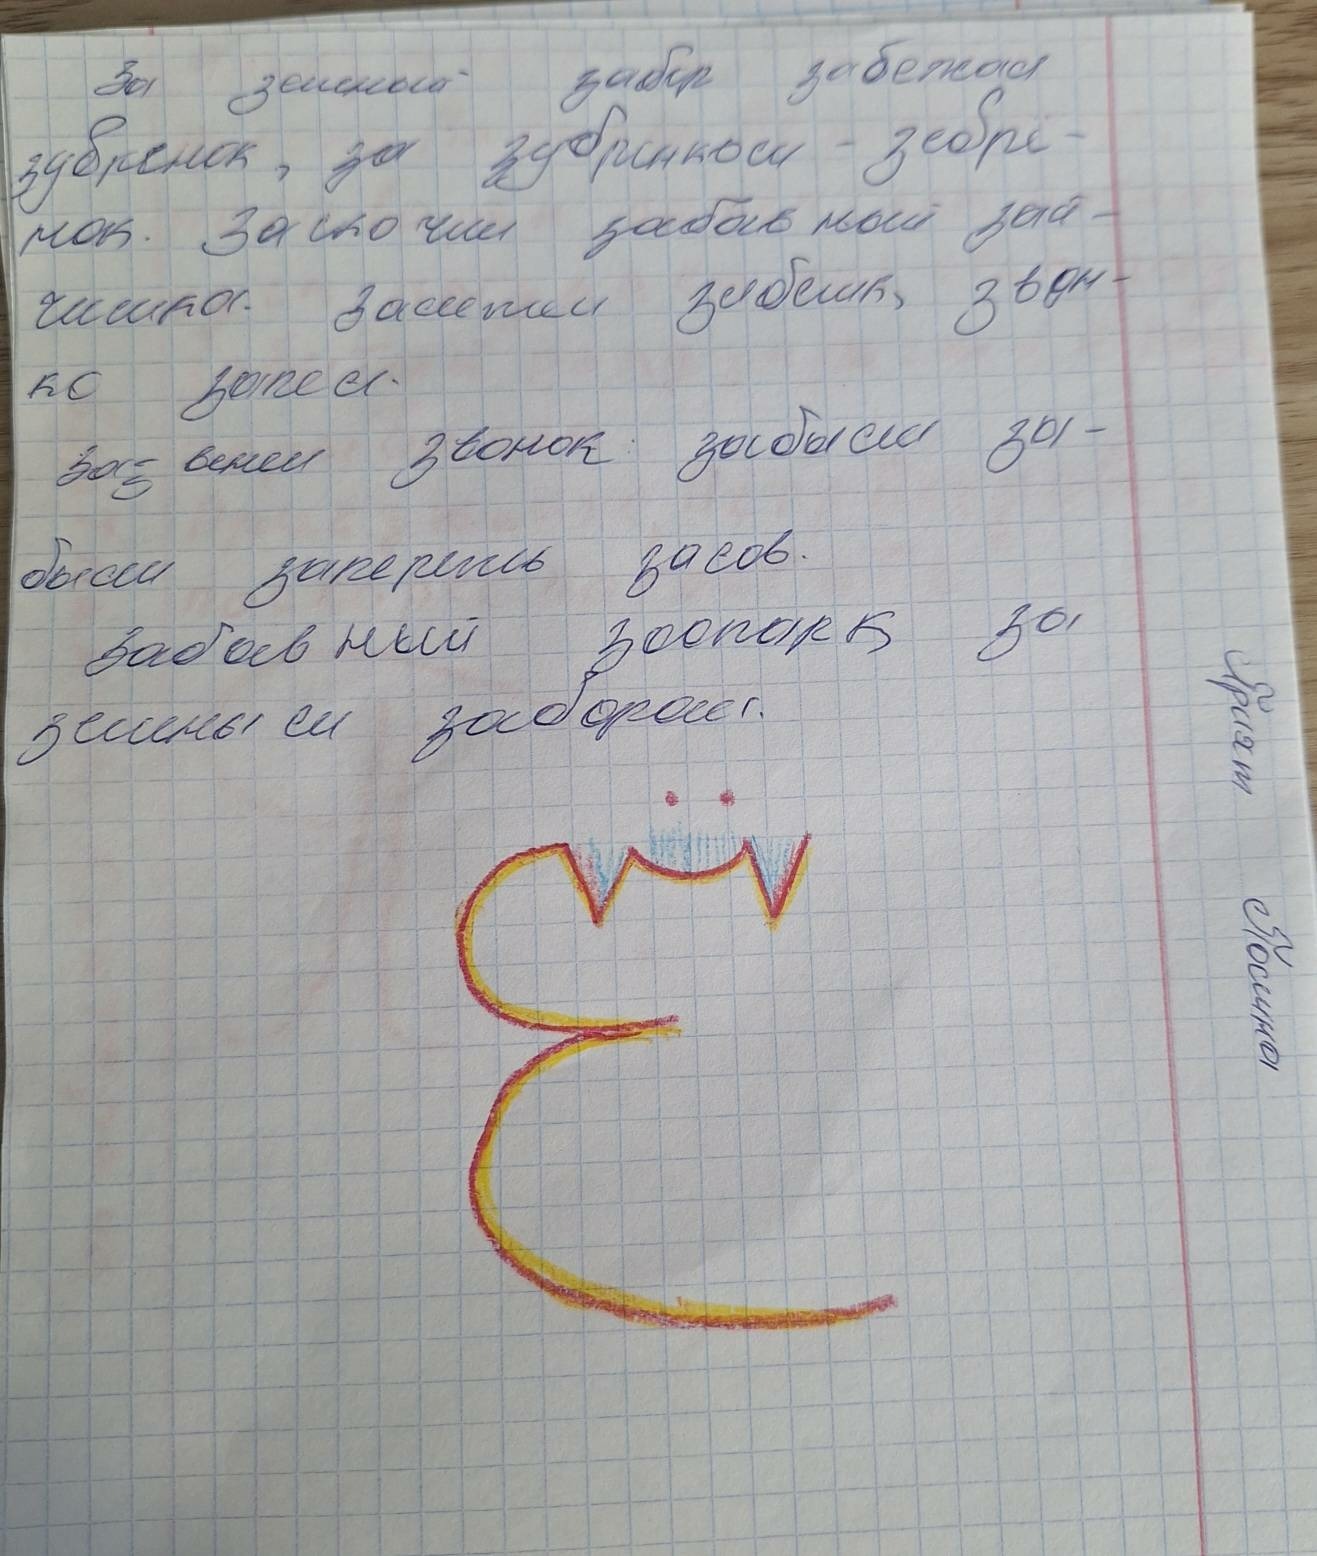 За зеленый забор забежал
зубренок, за зубренком - зебре-
нок. Заскочил забавный зай-
чишка. Залетел зяблик, звон-
ко запел.
Зазвенел звонок: забыли за-
были запереть засов.
Забавный зоопарк за
зеленым забором.